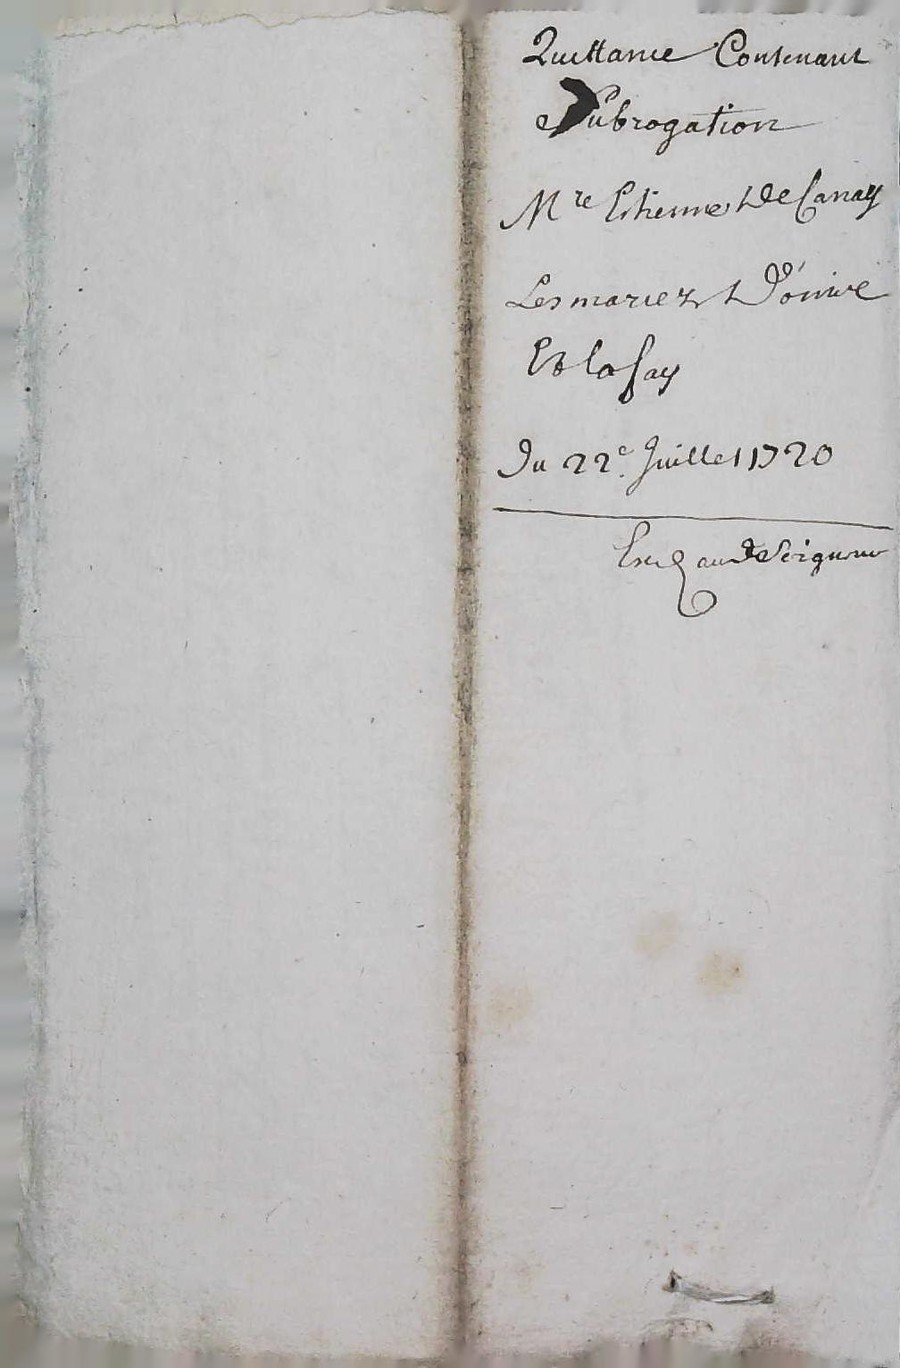 Quittance Contenant
Subrogation
Mre Estienne De Canay
Les mariez D'
Et lafay
Du 22e Juillet 1720
Seigneur